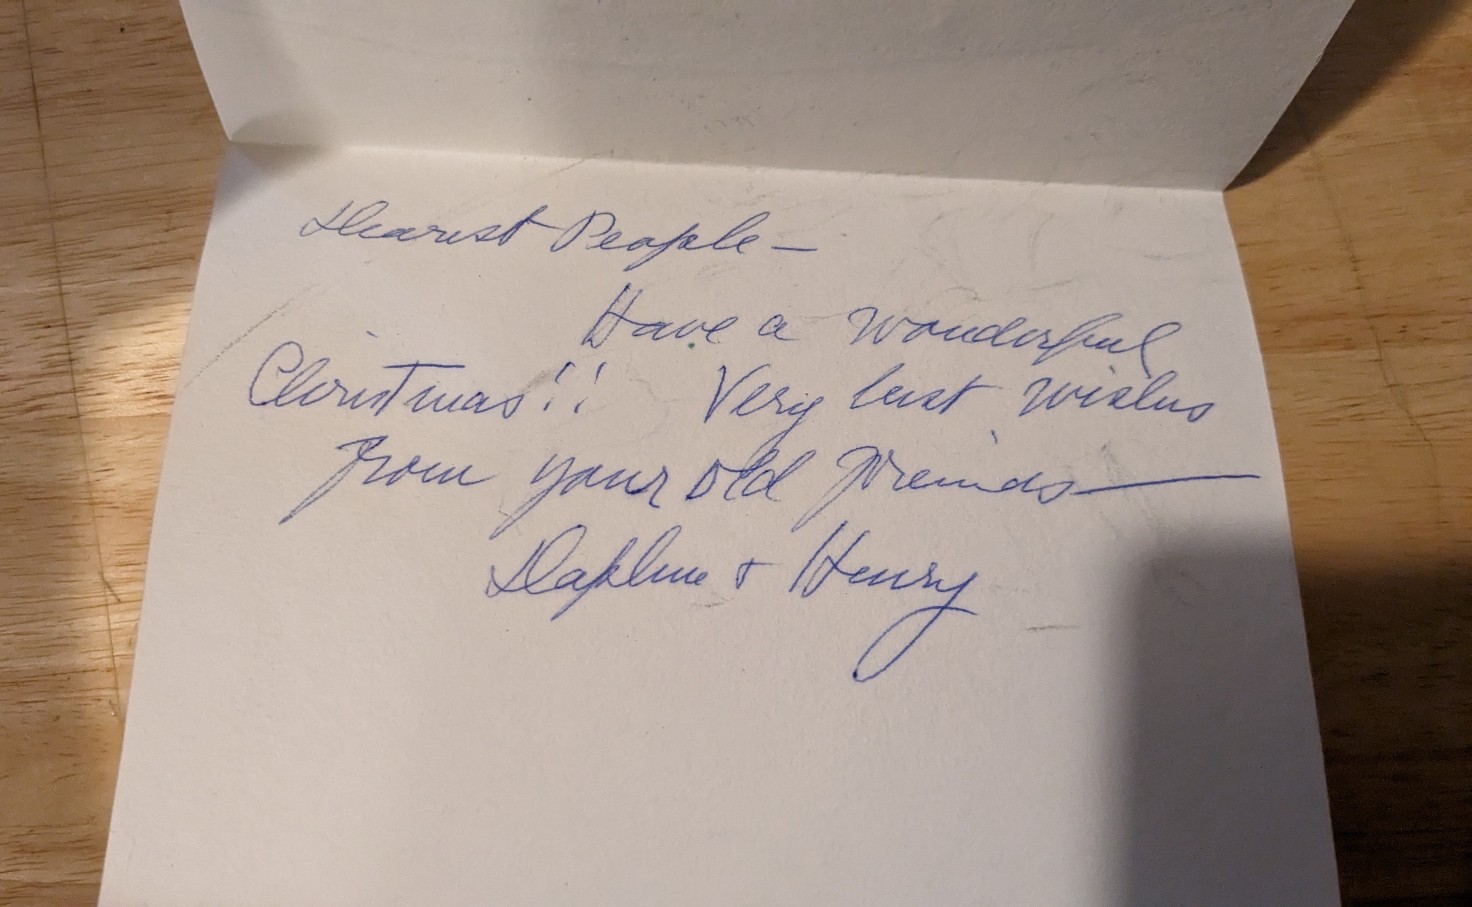 Dearest People —
Have a wonderful
Christmas!! Very best wishes
from your old friends —
Daphne + Henry